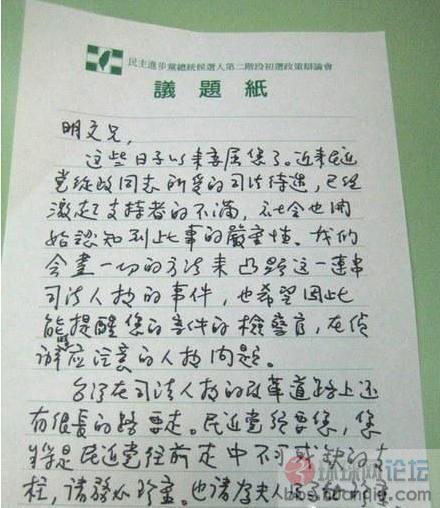 民主進步黨總統候選人第二階段初選政策辯論會
議題紙
明文兄,
這些日子以來委屈您了。近來民近
党從政同志所受的司法待遇,已經
激起了支持者的不滿,社会也開
始認知到此事的嚴重性。我們
会盡一切的方法來凸顯這一連串
司法人权的事件,也希望因此
能提醒您的案件的檢警官,在偵
辦應注意的人权問題。
台灣在司法人权的改革道路上还
有很長的路要走。民近党須要您,您
將是民近党往前走中不可或缺的支
柱,請務必珍重。也請為夫人
环球网论坛